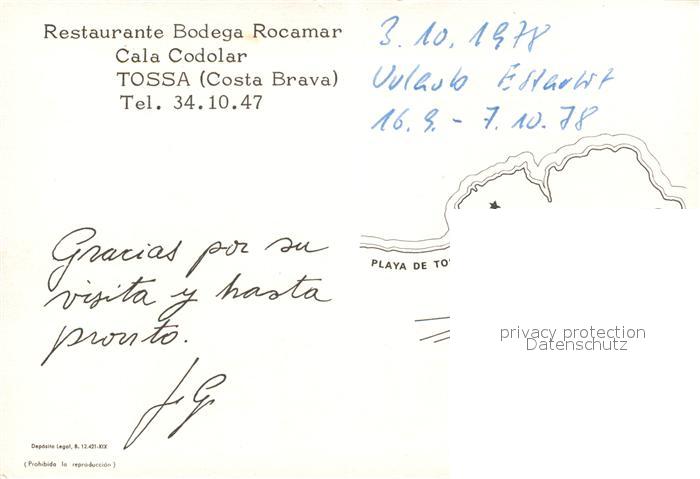 Restaurante Bodega Rocamar
Cala Codolar
TOSSA (Costa Brava)
Tel. 34.10.47
3.10.1978
Urlaub Estartit
16.9. - 7.10.78
PLAYA DE TO
Gracias por su
visita y hasta
pronto.
J.G.
privacy protection
Datenschutz
Depósito Legal, B. 12.421-XIX
(Prohibida la reproducción)